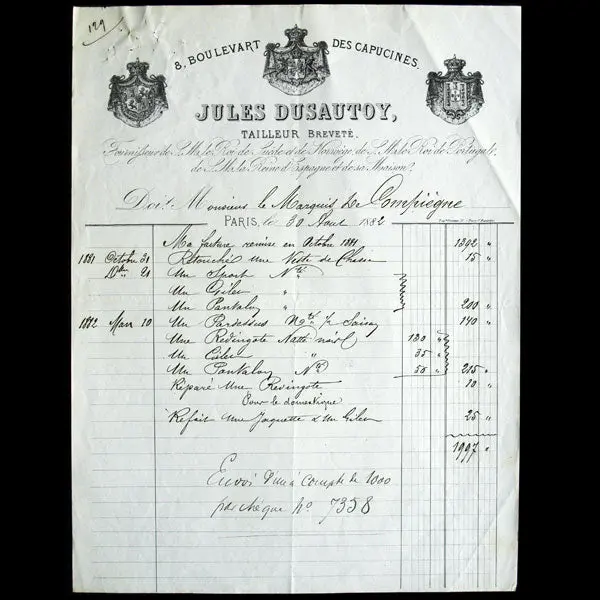 129
8, BOULEVART DES CAPUCINES.
JULES DUSAUTOY,
TAILLEUR BREVETÉ.
Fournisseur de S. M. le Roi de Suède et de Norwège, de S. M. le Roi de Portugal,
de S. M. la Reine d'Espagne et de sa Maison.
Doit Monsieur le Marquis de Compiègne
PARIS, le 30 Aout 1882
Ma facture remise en Octobre 1881 1302 "
1881 Octobre 31 Retouché une Veste de Chasse 15 "
21 Un Sport
Un Gilet "
Un Pantalon " 200 "
1882 Mars 10 Un Pardessus 140 "
Une Redingote Natté noir 130 "
Un Gilet " 35 "
Un Pantalon 50 " 215 "
Réparé Une Redingote 10 "
Pour le domestique
Refait Une Jaquette & Un Gilet 25 "
1997 "
Envoi d'un à compte de 1000
par chèque No 7358